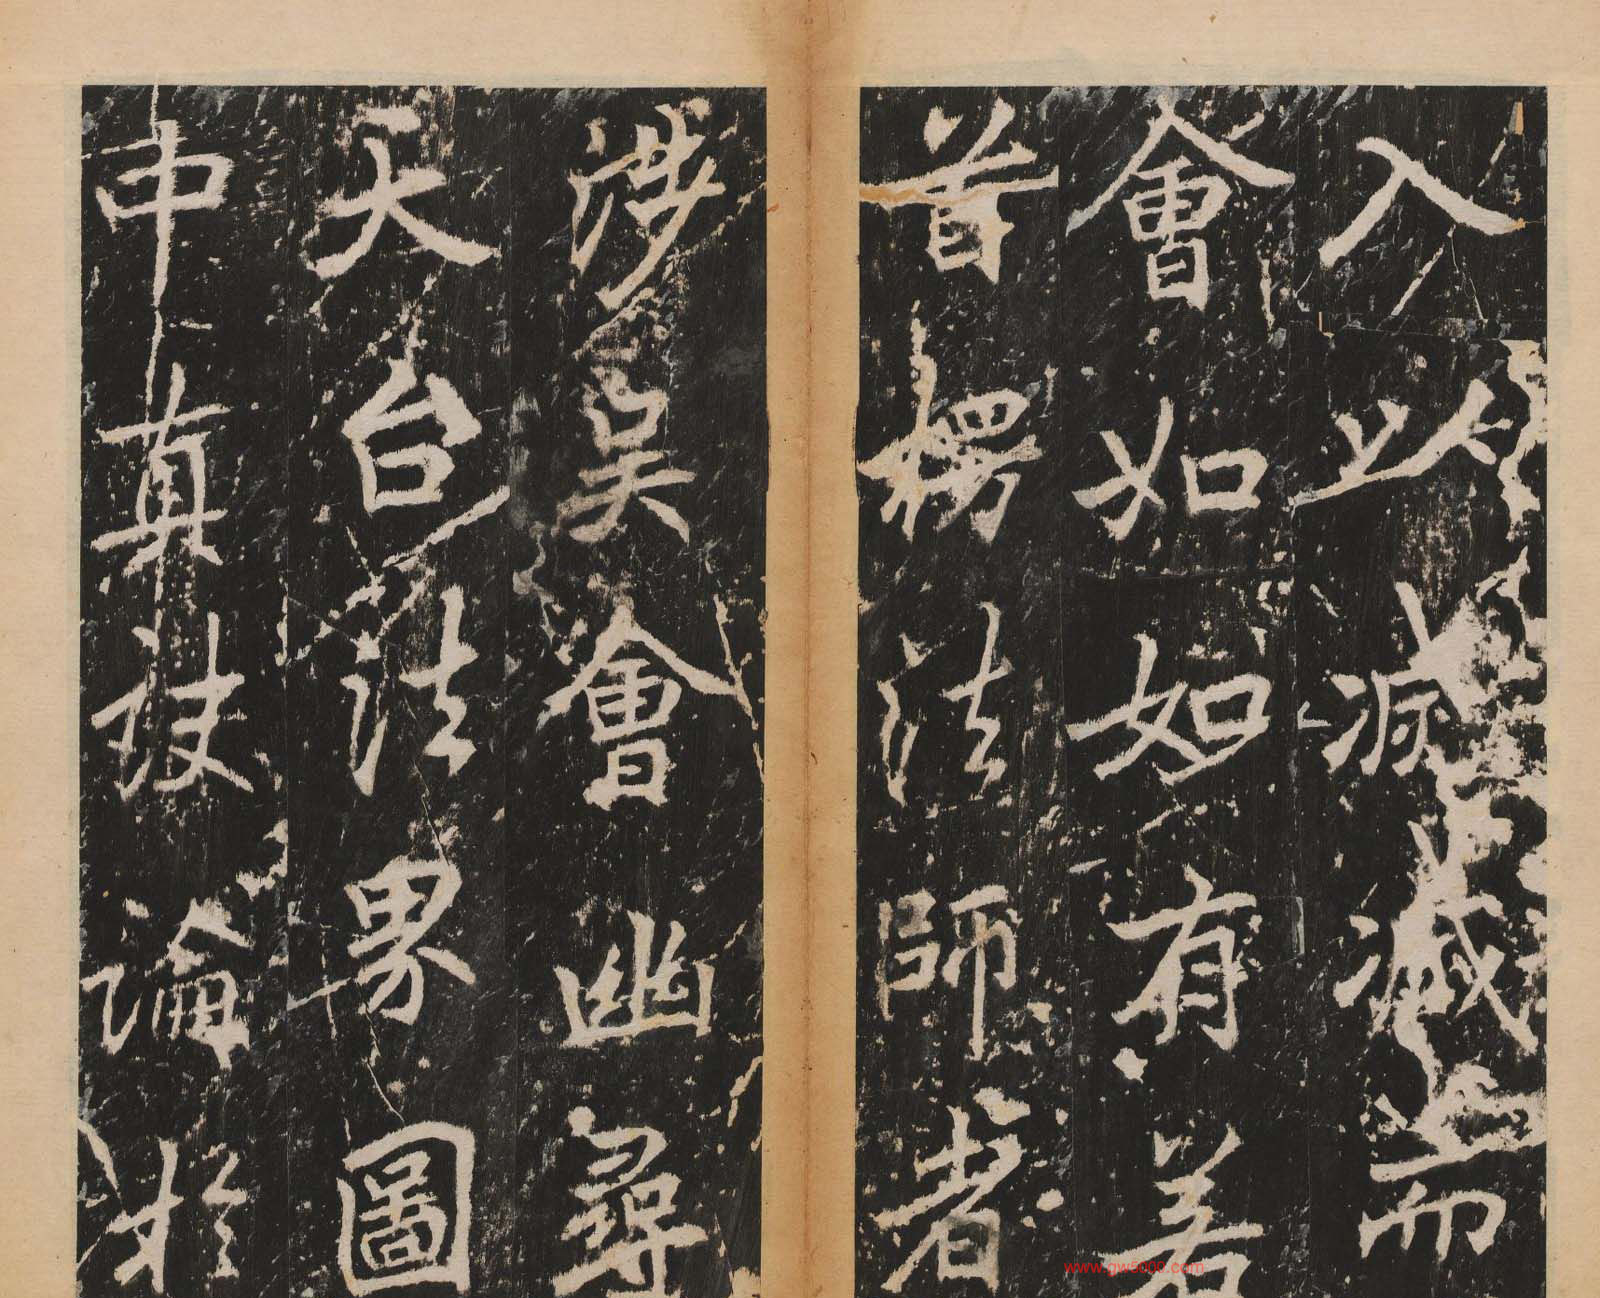 入以滅滅而
會如如有若
首楞法師者
涉吳會幽尋
天台法界圖
中真訣論於
www.gw5000.com